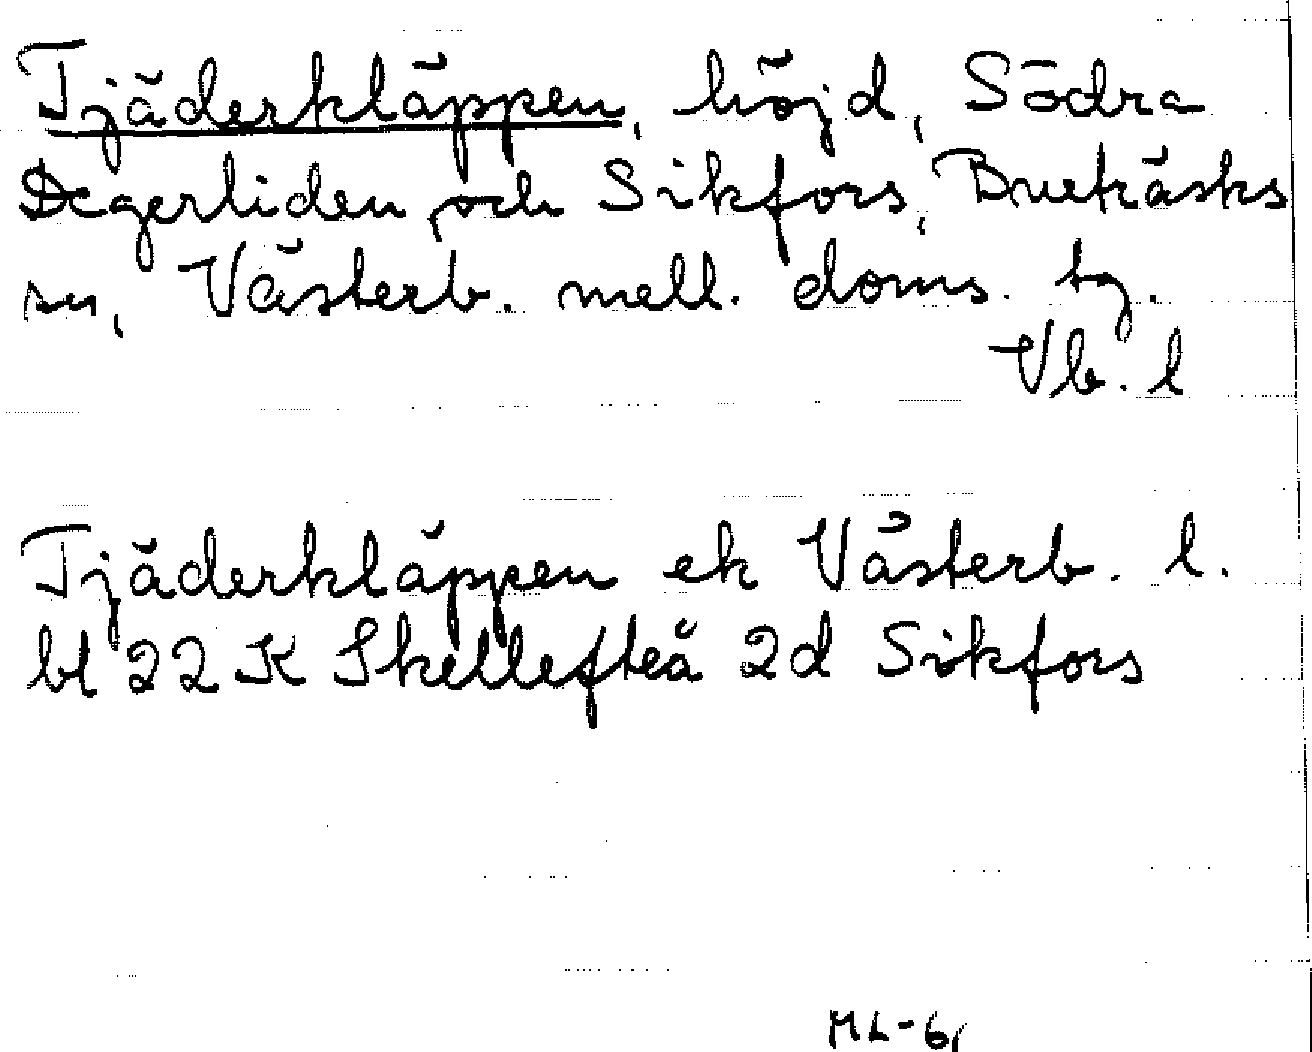 Tjäderkläppen, höjd, Södra
Degerliden och Sikfors, Burträsks
sn, Västerb. mell. doms. tg.
Vb. l
Tjäderkläppen ek Västerb. l.
bl 22 K Skellefteå 2d Sikfors